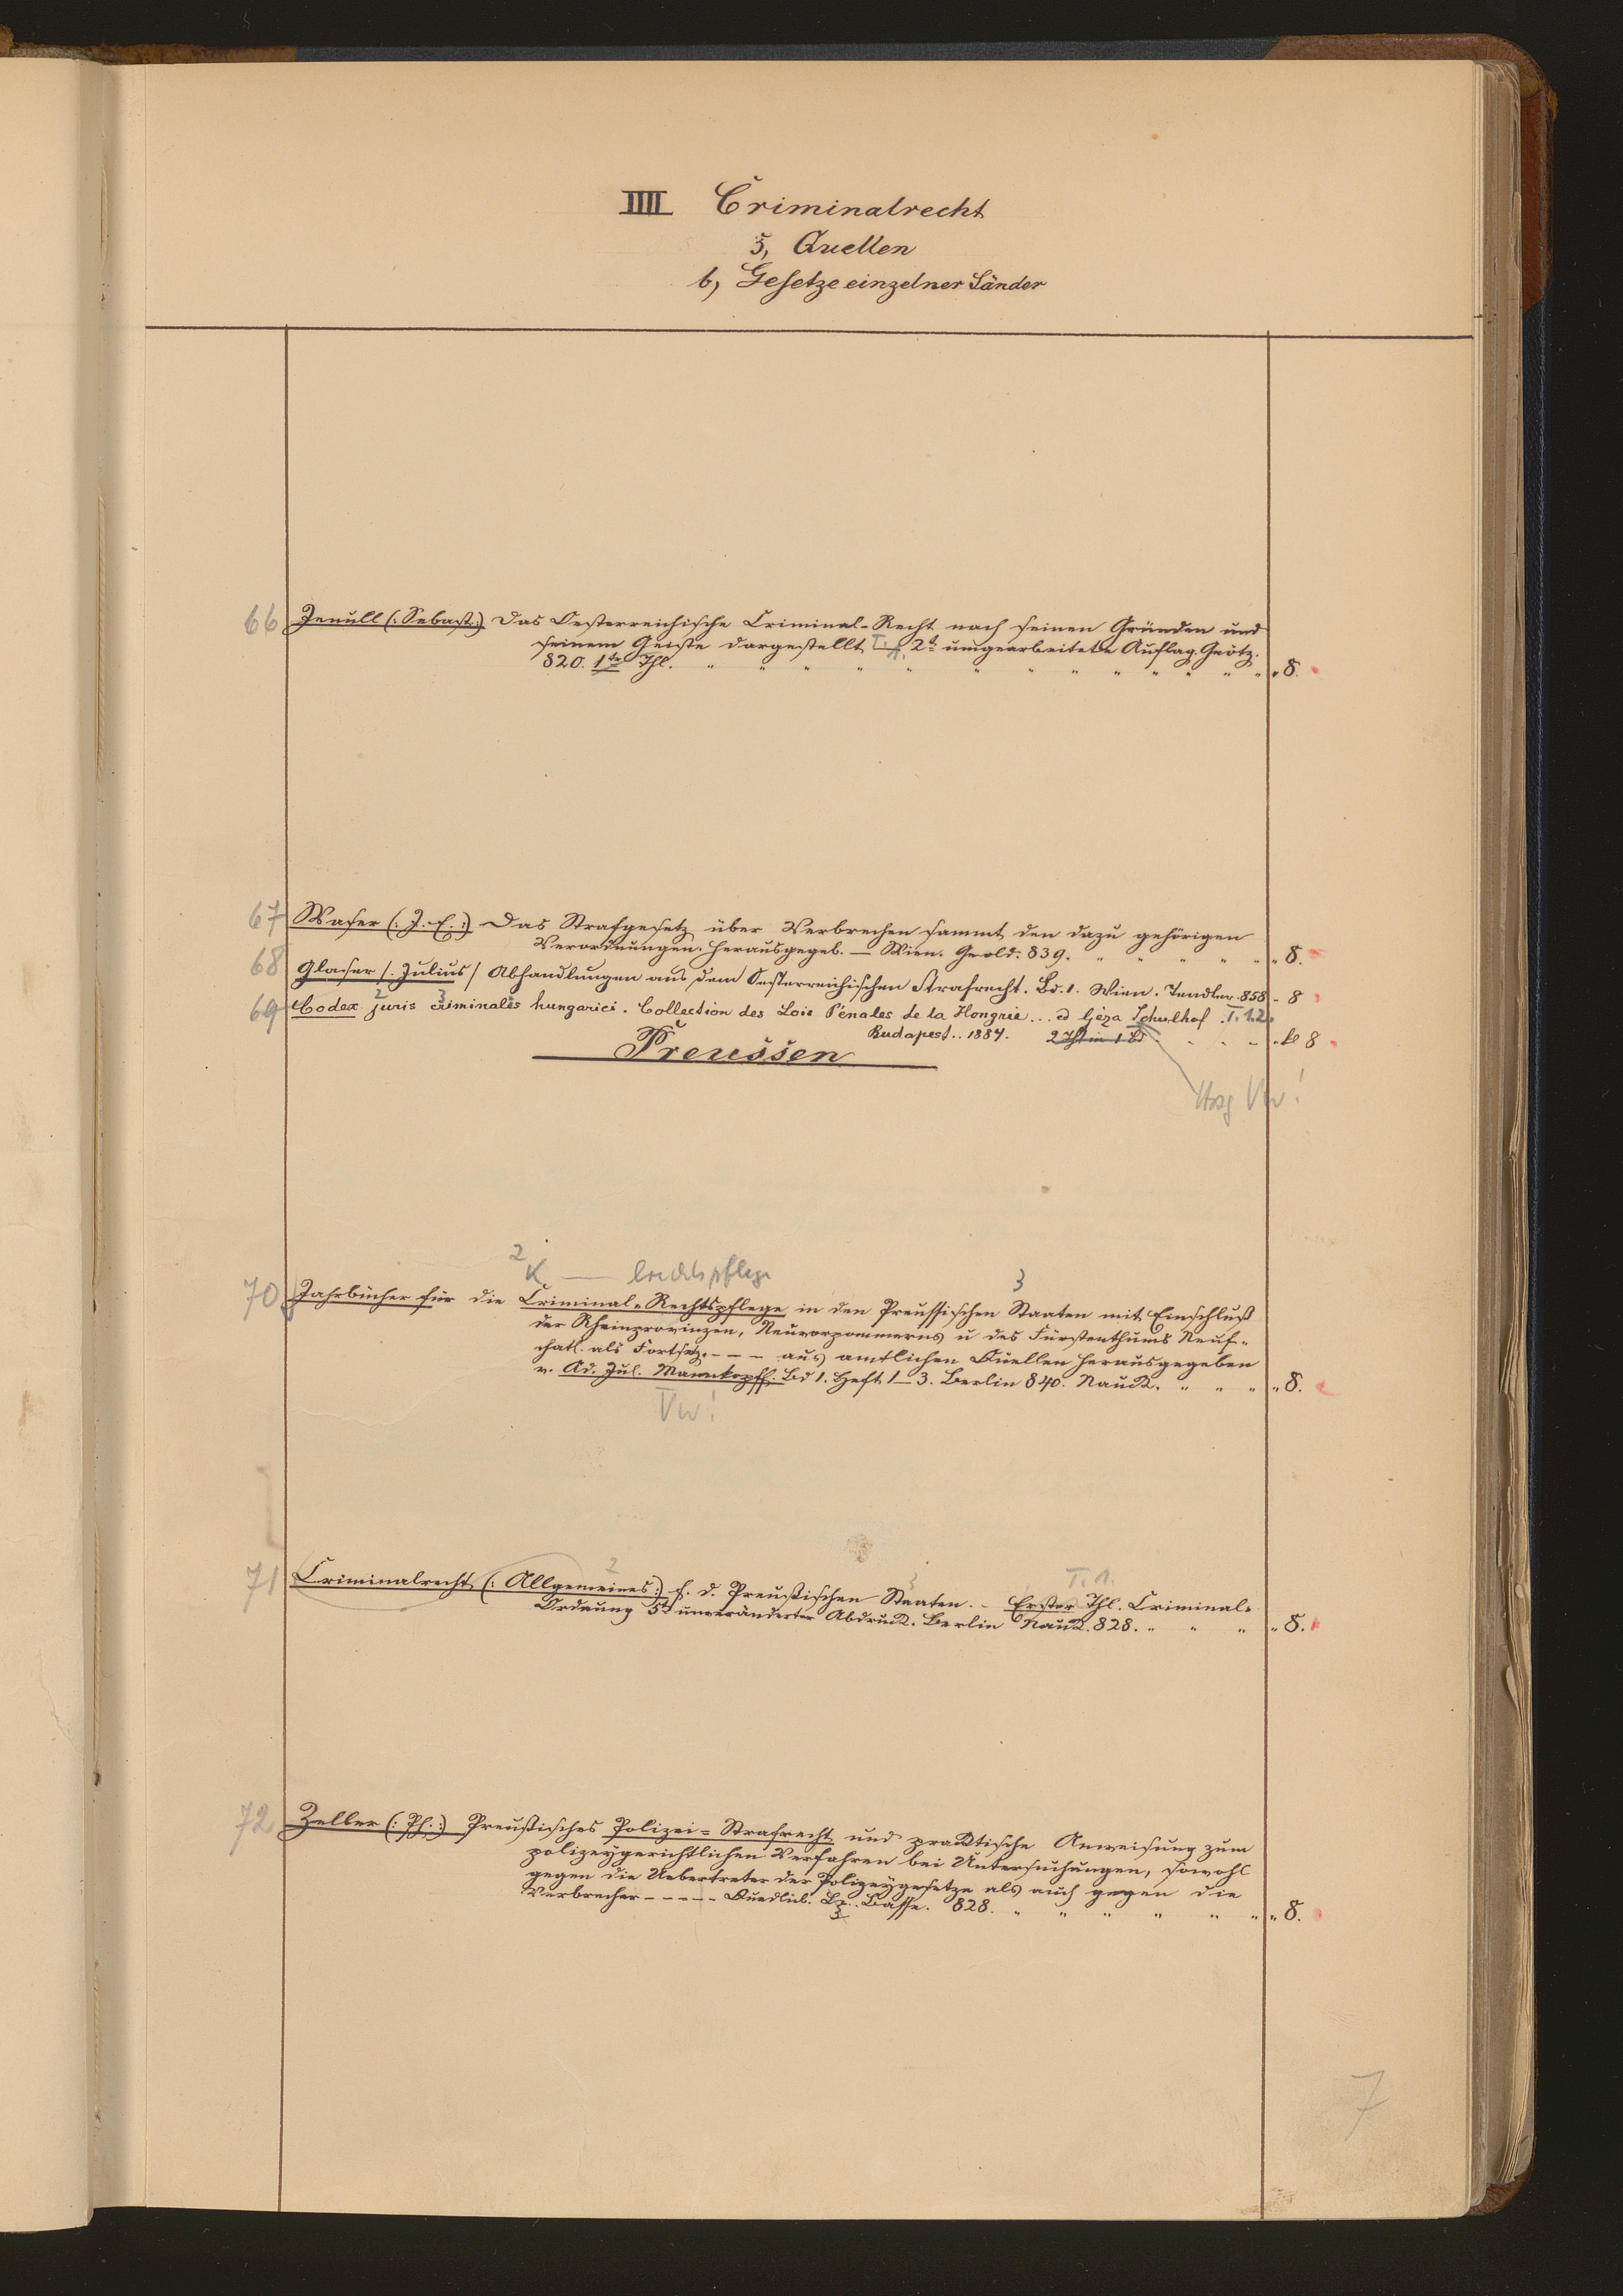 IIII Criminalrecht
5, Quellen
b, Gesetze einzelner Länder
66 Jenull (: Sebast:) Das Oesterreichische Criminal-Recht nach seinen Gründen und
seinem Geiste dargestellt T. 1. 2t umgearbeitete Auflag. Grätz.
820. 1ter Thl. " " " " " " " " " " " " " 8.
67 Waser (: J. E.:) Das Strafgesetz über Verbrechen sammt den dazu gehörigen
Verordnungen. herausgegeb. — Wien. Gerold. 839. " " " " " " 8.
68 Glaser /: Julius / Abhandlungen aus dem Oesterreichischen Strafrecht. Bd. 1. Wien. Tendler. 858 - 8
69 Codex 2 juris 3 criminales hungarici. Collection des Lois Pénales de la Hongrie... ed Géza Schulhof. T. 1.2.
Budapest.. 1884. 2 Thl in 1 Bd. - - - kl 8
Preussen
Hrsg Vw!
2 K — rechtspflege 3
70 Jahrbücher für die Criminal-Rechtspflege in den Preussischen Staaten mit Einschluß
der Rheinprovinzen, Neuvorpommerns u des Fürstenthums Neuf-
chatl. als Fortsetz. - - - aus amtlichen Quellen herausgegeben
v. Ad. Jul. Mannkopff. Bd 1. Heft 1—3. Berlin 840. Nauck. " " " " 8.
Vw!
2 3 T. 1.
71 Criminalrecht (: Allgemeines:) f. d. Preußischen Staaten. - Erster Thl. Criminal-
Ordnung 5t unveränderter Abdruck. Berlin Nauck. 828. " " " " 8.
72 Zeller (: Ph.:) Preußisches Polizei-Strafrecht und praktische Anweisung zum
polizeygerichtlichen Verfahren bei Untersuchungen, sowohl
gegen die Uebertreter der Polizeygesetze als auch gegen die
Verbrecher - - - - - Quedlinb. Lz. Basse. 828. " " " " " " " 8.
7